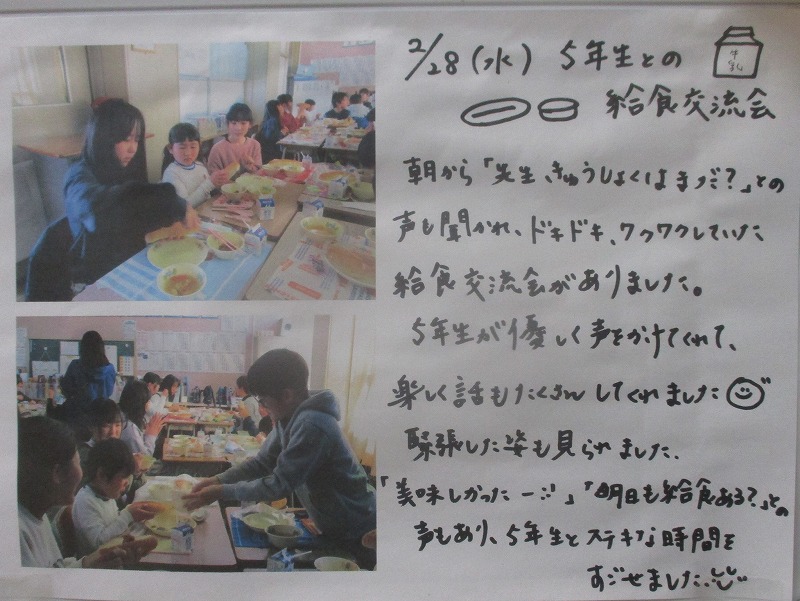 2/28(水) 5年生との
牛乳
給食交流会
朝から「先生、きゅうしょくはまだ?」との
声も聞かれ、ドキドキ、ワクワクしていた
給食交流会がありました。
5年生が優しく声をかけてくれて、
楽しく話もたくさんしてくれました
緊張した姿も見られました、
「美味しかったー」「明日も給食ある?」との
声もあり、5年生とステキな時間を
すごせました